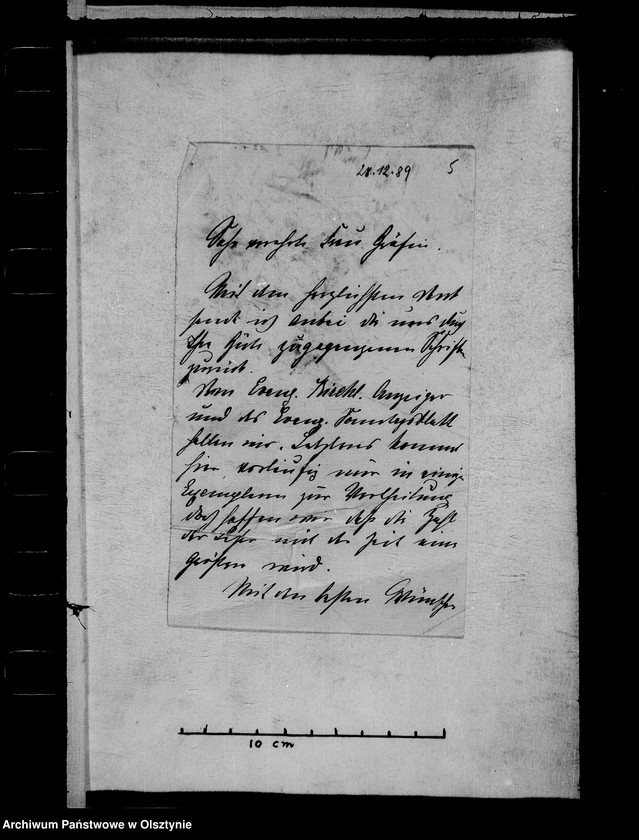 28.12.89 5
Sehr verehrte Frau Gräfin.
Mit dem herzlichsten Dank
sende ich anbei die uns durch
Ihre Güte zugegangenen Schriften
zurück.
Den Evang. Kirchl. Anzeiger
und das Evang. Sonntagsblatt
halten wir. Letzteres kommt
hier vorläufig nur in einigen
Exemplaren zur Vertheilung
doch hoffen wir daß die Zahl
der Leser mit der Zeit eine
größere wird.
Mit den besten Wünschen
10 cm
Archiwum Państwowe w Olsztynie